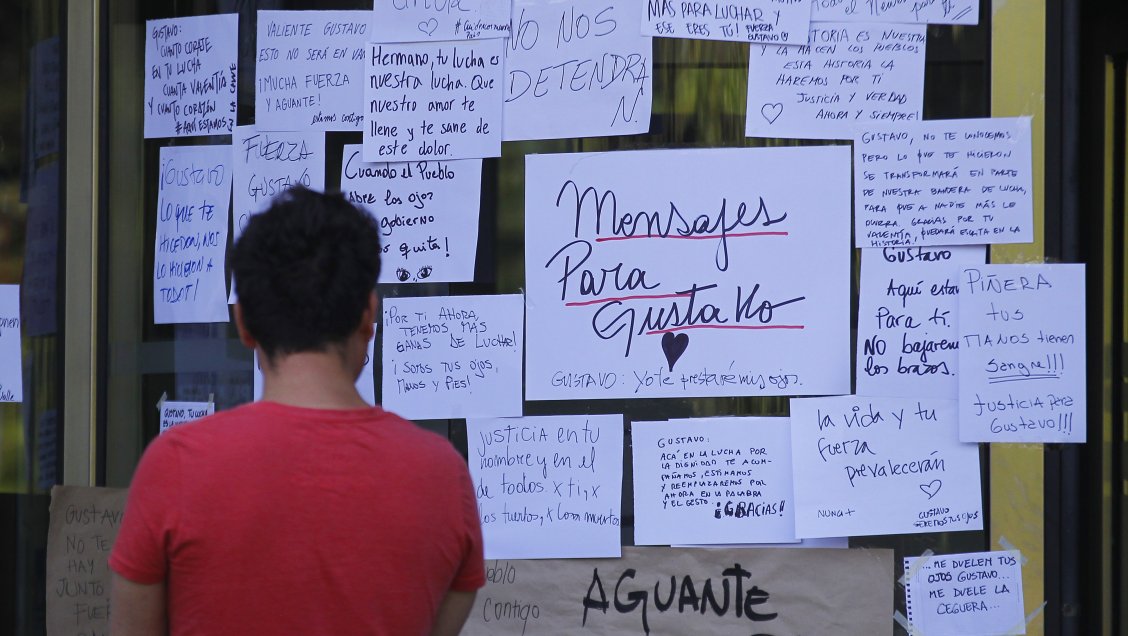 GUSTAVO:
¡CUANTO CORAJE
EN TU LUCHA
CUANTA VALENTÍA
Y CUANTO CORAZÓN
#AQUÍ ESTAMOS
EN LA CALLE
VALIENTE GUSTAVO
ESTO NO SERÁ EN
¡MUCHA FUERZA
Y AGUANTE!
Hermano, tu lucha es
nuestra lucha. Que
nuestro amor te
llene y te sane de
este dolor.
NO NOS
DETENDRÁN
MÁS PARA LUCHAR Y
ESE ERES TU! FUERZA
GUSTAVO
ES NUESTRA
Y LA HACEN LOS PUEBLOS
ESTA HISTORIA LA
HAREMOS POR TÍ
JUSTICIA Y VERDAD
AHORA Y SIEMPRE!
GUSTAVO, NO TE CONOCEMOS
PERO LO QUE TE HICIERON
SE TRANSFORMARÁ EN PARTE
DE NUESTRA BANDERA DE LUCHA,
PARA QUE A NADIE MÁS LE
OCURRA. GRACIAS POR TU
VALENTÍA, QUEDARÁ ESCRITA EN LA
HISTORIA.
¡GUSTAVO
LO QUE TE
HICIERON, NOS
LO HICIERON A
TODOS!
FUERZA
GUSTAVO
Cuando el Pueblo
Abre los ojos
gobierno
quita!
Mensajes
Para
Gustavo
GUSTAVO: Yo te prestaré mis ojos.
¡POR TI AHORA,
TENEMOS MÁS
GANAS DE LUCHAR!
¡SOMOS TUS OJOS,
MANOS Y PIES!
Gustavo
Aquí
Para ti.
NO bajaremos
los brazos.
PIÑERA
tus
MANOS tienen
Sangre!!!
Justicia para
Gustavo!!!
GUSTAVO, TU LUCHA
JUSTICIA EN tu
nombre y en el
de todos. x ti, x
los tuertos, x los muertos
GUSTAVO:
ACÁ EN LA LUCHA POR
LA DIGNIDAD TE ACOM-
PAÑAMOS, ESTIMAMOS
Y REEMPLAZAREMOS POR
AHORA EN LA PALABRA
Y EL GESTO.
¡GRACIAS!
la vida y tu
fuerza
prevalecerán
NUNCA +
GUSTAVO
SEREMOS TUS OJOS
GUSTAVO
NO TE
HAY
JUNTO
Contigo
AGUANTE
...ME DUELEN TUS
OJOS GUSTAVO...
ME DUELE LA
CEGUERA...